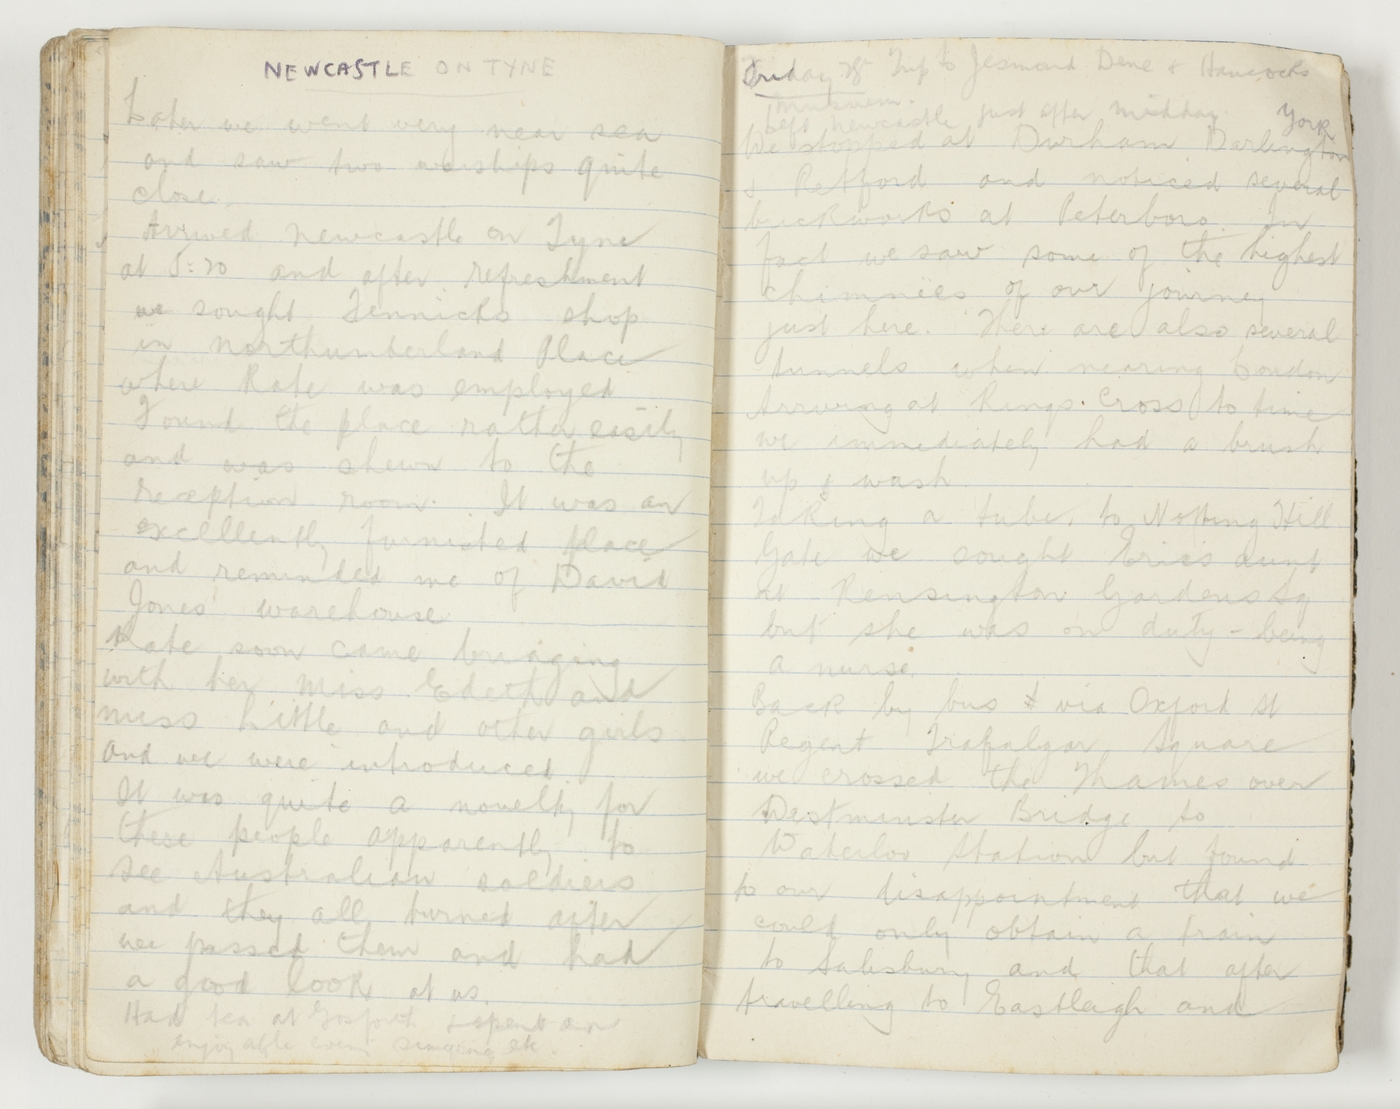 NEWCASTLE ON TYNE
Later we went very near sea
and saw two warships quite
close.
Arrived Newcastle on Tyne
at 5:20 and after refreshment
we sought Fennicks shop
in Northumberland Place
where Kate was employed
Found the place rather easily
and was shewn to the
reception room. It was an
excellently furnished place
and reminded me of David
Jones' warehouse
Kate soon came bringing
with her Miss Edeth and
Miss Little and other girls
and we were introduced
It was quite a novelty for
these people apparently to
see Australian soldiers
and they all turned after
we passed them and had
a good look at us.
Had tea at Gosforth & spent an
enjoyable eveng singing etc.
Friday 28th Trip to Jesmond Dene & Hancocks
Museum.
Left Newcastle just after midday.
York
We stopped at Durham Darlington
& Retford and noticed several
brickworks at Peterboro. In
fact we saw some of the highest
chimnies of our journey
just here. There are also several
tunnels when nearing London
Arriving at Kings Cross to time
we immediately had a brush
up & wash
Taking a tube to Notting Hill
Gate we sought Eric's aunt
at Kensington Gardens Sq
but she was on duty - being
a nurse.
Back by bus & via Oxford St
Regent Trafalgar Square
we crossed the Thames over
Westminster Bridge to
Waterloo Station but found
to our disappointment that we
could only obtain a train
to Salisbury and that after
travelling to Eastleigh and